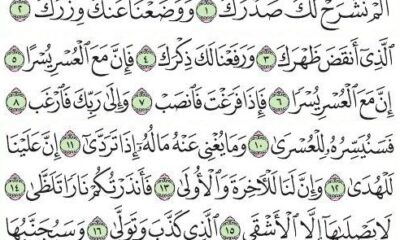 أَلَمْ نَشْرَحْ لَكَ صَدْرَكَ ١ وَوَضَعْنَا عَنكَ وِزْرَكَ ٢
ٱلَّذِىٓ أَنقَضَ ظَهْرَكَ ٣ وَرَفَعْنَا لَكَ ذِكْرَكَ ٤ فَإِنَّ مَعَ ٱلْعُسْرِ يُسْرًا ٥
إِنَّ مَعَ ٱلْعُسْرِ يُسْرًا ٦ فَإِذَا فَرَغْتَ فَٱنصَبْ ٧ وَإِلَىٰ رَبِّكَ فَٱرْغَب ٨
فَسَنُيَسِّرُهُۥ لِلْعُسْرَىٰ ١٠ وَمَا يُغْنِى عَنْهُ مَالُهُۥٓ إِذَا تَرَدَّىٰٓ ١١ إِنَّ عَلَيْنَا
لَلْهُدَىٰ ١٢ وَإِنَّ لَنَا لَلْـَٔاخِرَةَ وَٱلْأُولَىٰ ١٣ فَأَنذَرْتُكُمْ نَارًا تَلَظَّىٰ ١٤
لَا يَصْلَىٰهَآ إِلَّا ٱلْأَشْقَى ١٥ ٱلَّذِى كَذَّبَ وَتَوَلَّىٰ ١٦ وَسَيُجَنَّبُهَا